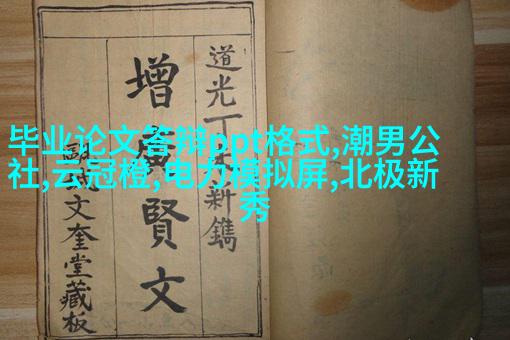 毕业论文答辩ppt格式,潮男公
社,云冠橙,电力模拟屏,北极新
秀
道光丁
新鐫
增廣賢文
文奎堂藏板